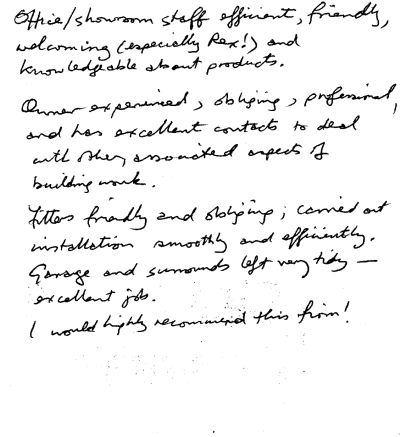 Office/showroom staff efficient, friendly,
welcoming (especially Rex!) and
knowledgeable about products.
Owner experienced, obliging, professional,
and has excellent contacts to deal
with other associated aspects of
building work.
Fitters friendly and obliging; carried out
installation smoothly and efficiently.
Garage and surrounds left very tidy —
excellent job.
I would highly recommend this firm!